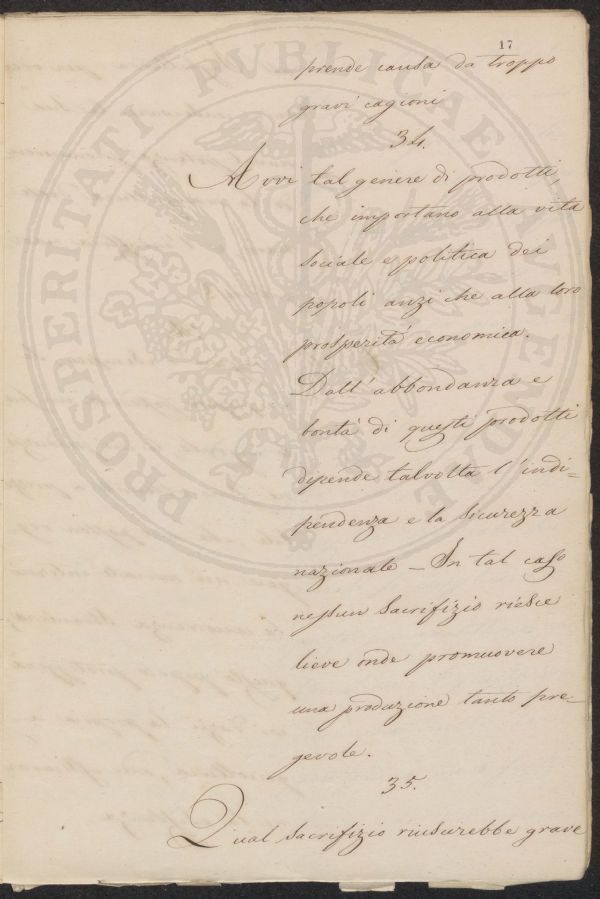 17
prende causa da troppo
gravi cagioni
34.
Avvi tal genere di prodotti,
che importano alla vita
sociale e politica dei
popoli anzi che alla loro
prosperità economica.
Dall'abbondanza e
bontà di questi prodotti
dipende talvolta l'indi-
pendenza e la sicurezza
nazionale - In tal caso
nessun sacrifizio riesce
lieve onde promuovere
una produzione tanto pre-
gevole.
35.
Qual sacrifizio riuscirebbe grave
PROSPERITATI PVBLICAE AVGENDAE